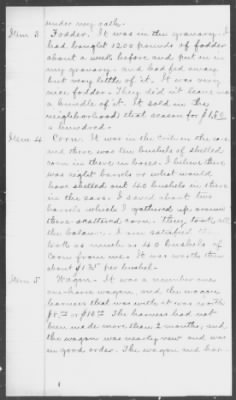 under my oath.
Item 3 Fodder. It was in the granary. I
had bought 1200 pounds of fodder
about a week before and put in in
my granary and had fed away
but very little of it. It was very
nice fodder. They did it leave me
a bundle of it. It sold in the
neighborhood that season for $1.50
a hundred.
Item 4 Corn. It was in the crib on the ear
and there was ten bushels of shelled
corn in there in boxes. I believe there
was eight barrels or what would
have shelled out 40 bushels in there
in the ear. I saved about two
barrels which I gathered up around
there scattered corn. They took all
the balance. I am satisfied they
took as much as 40 bushels of
corn from me. It was worth then
about $1.25 per bushel.
Item 5 Wagon. It was a number one
one-horse wagon, and the wagon
harness that was with it was worth
$8.00 or $10.00 The harness had not
been made more than 2 months, and
the wagon was nearly new and was
in good order. The wagon and har-